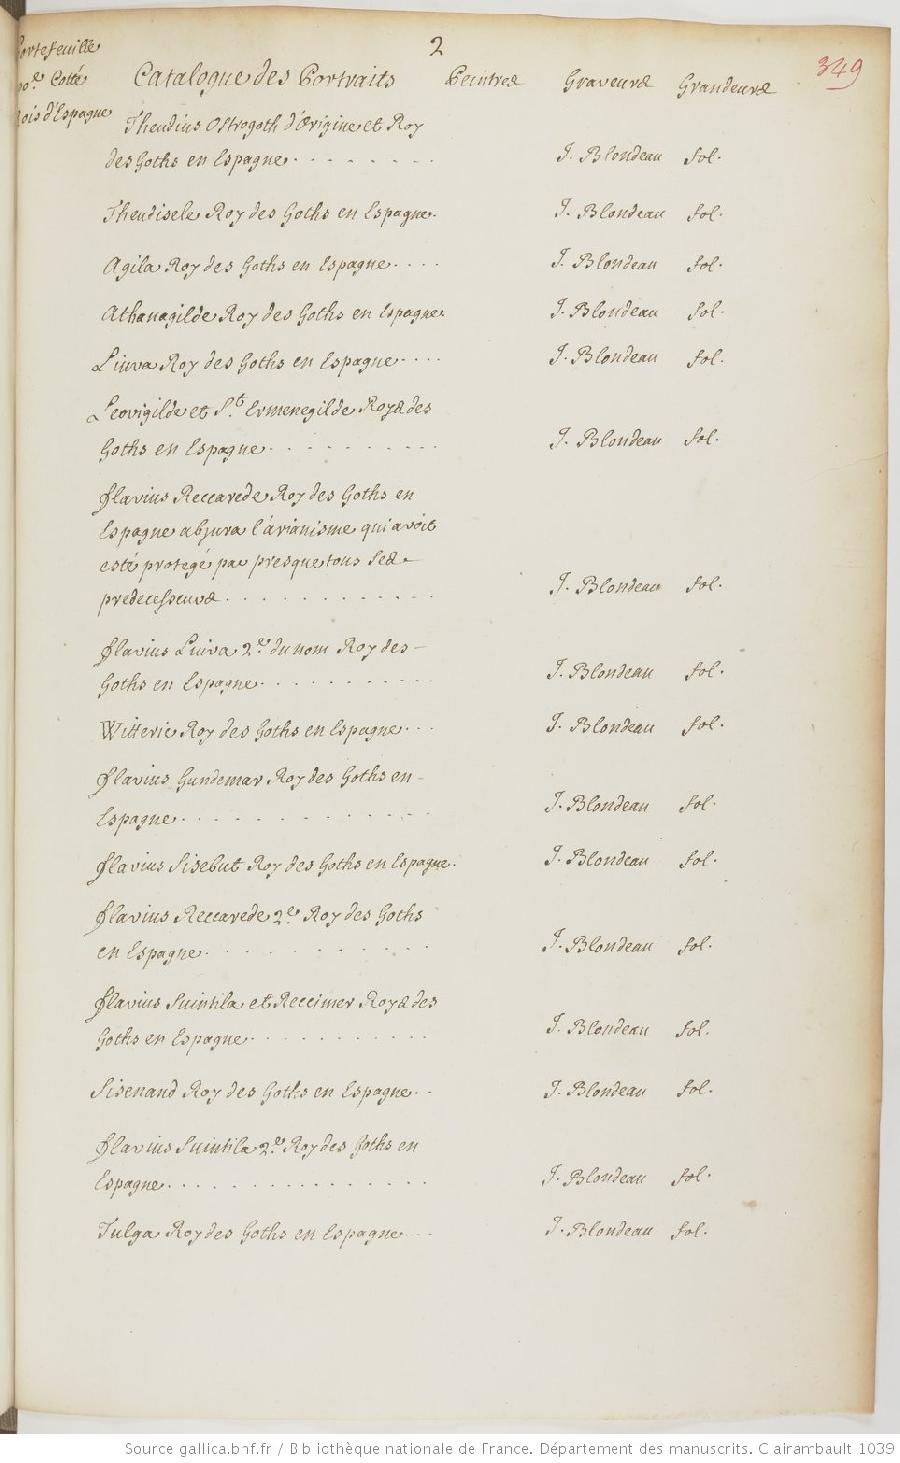 2
349
Portefeuille
Catalogue des Portraits Peintres Graveurs Grandeurs
Cotté
Rois d'Espagne
Theudius Ostrogoth d'Origine et Roy
des Goths en Espagne . . . . . . . . J. Blondeau fol.
Theudisele Roy des Goths en Espagne. J. Blondeau fol.
Agila Roy des Goths en Espagne . . . . J. Blondeau fol.
Athanagilde Roy des Goths en Espagne. J. Blondeau fol.
Liuva Roy des Goths en Espagne . . . . J. Blondeau fol.
Leovigilde et St. Ermenegilde Roys des
Goths en Espagne . . . . . . . . . . J. Blondeau fol.
flavius Reccarede Roy des Goths en
Espagne abjura l'arianisme qui avoit
esté protegé par presque tous ses
predecesseurs . . . . . . . . . . . . J. Blondeau fol.
flavius Liuva 2e. du nom Roy des
Goths en Espagne . . . . . . . . . . J. Blondeau fol.
Witteric Roy des Goths en Espagne . . . J. Blondeau fol.
flavius Gundemar Roy des Goths en
Espagne . . . . . . . . . . . . . . J. Blondeau fol.
flavius Sisebut Roy des Goths en Espagne. J. Blondeau fol.
flavius Reccarede 2e. Roy des Goths
en Espagne . . . . . . . . . . . . J. Blondeau fol.
flavius Suintila et Reccimer Roys des
Goths en Espagne . . . . . . . . . . . J. Blondeau fol.
Sisenand Roy des Goths en Espagne . . J. Blondeau fol.
flavius Suintila 2e. Roy des Goths en
Espagne . . . . . . . . . . . . . . . . J. Blondeau fol.
Tulga Roy des Goths en Espagne . . . J. Blondeau fol.
Source gallica.bnf.fr / Bibliothèque nationale de France. Département des manuscrits. Clairambault 1039